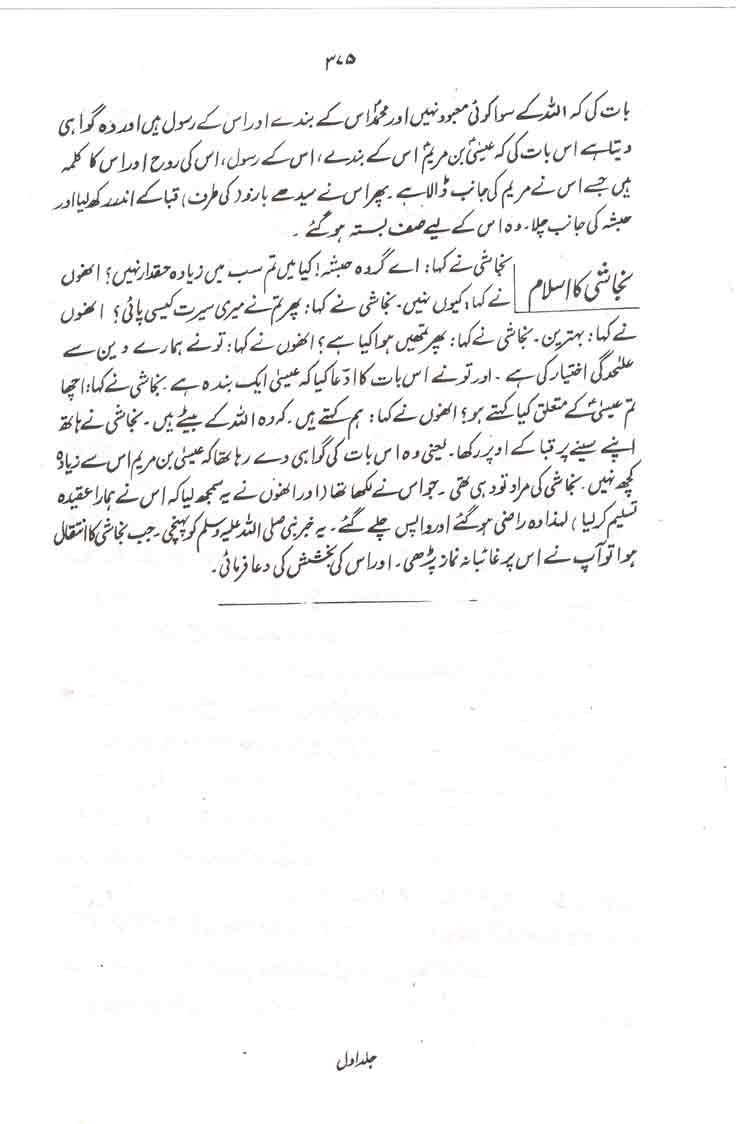 ۳۷۵
بات کی کہ اللہ کے سوا کوئی معبود نہیں اور محمدؐ اس کے بندے اور اس کے رسول ہیں اور وہ گواہی
دیتا ہے اس بات کی کہ عیسیٰؑ بن مریمؑ اس کے بندے، اس کے رسول، اس کی روح اور اس کا کلمہ
ہیں جسے اس نے مریم کی جانب ڈالا ہے۔ پھر اس نے سیدھے بازو (کی طرف) قبا کے اندر رکھ لیا اور
حبشہ کی جانب چلا۔ وہ اس کے لیے صف بستہ ہو گئے۔
نجاشی کا اسلام
نجاشی نے کہا: اے گروہ حبشہ! کیا میں تم سب میں زیادہ حقدار نہیں؟ انھوں
نے کہا: کیوں نہیں۔ نجاشی نے کہا: پھر تم نے میری سیرت کیسی پائی؟ انھوں
نے کہا: بہترین۔ نجاشی نے کہا: پھر تمھیں ہوا کیا ہے؟ انھوں نے کہا: تو نے ہمارے دین سے
علٰحدگی اختیار کی ہے۔ اور تو نے اس بات کا ادّعا کیا کہ عیسیٰ ایک بندہ ہے۔ نجاشی نے کہا: اچھا
تم عیسیٰؑ کے متعلق کیا کہتے ہو؟ انھوں نے کہا: ہم کہتے ہیں۔ کہ وہ اللہ کے بیٹے ہیں۔ نجاشی نے ہاتھ
اپنے سینے پر قبا کے اوپر رکھا۔ یعنی وہ اس بات کی گواہی دے رہا تھا کہ عیسیٰ بن مریم اس سے زیادہ
کچھ نہیں۔ نجاشی کی مراد تو وہی تھی۔ جو اس نے لکھا تھا (اور انھوں نے یہ سمجھ لیا کہ اس نے ہمارا عقیدہ
تسلیم کر لیا) لہذا وہ راضی ہو گئے اور واپس چلے گئے۔ یہ خبر نبی صلی اللہ علیہ وسلم کو پہنچی۔ جب نجاشی کا انتقال
ہوا تو آپ نے اس پر غائبانہ نماز پڑھی۔ اور اس کی بخشش کی دعا فرمائی۔
جلد اول